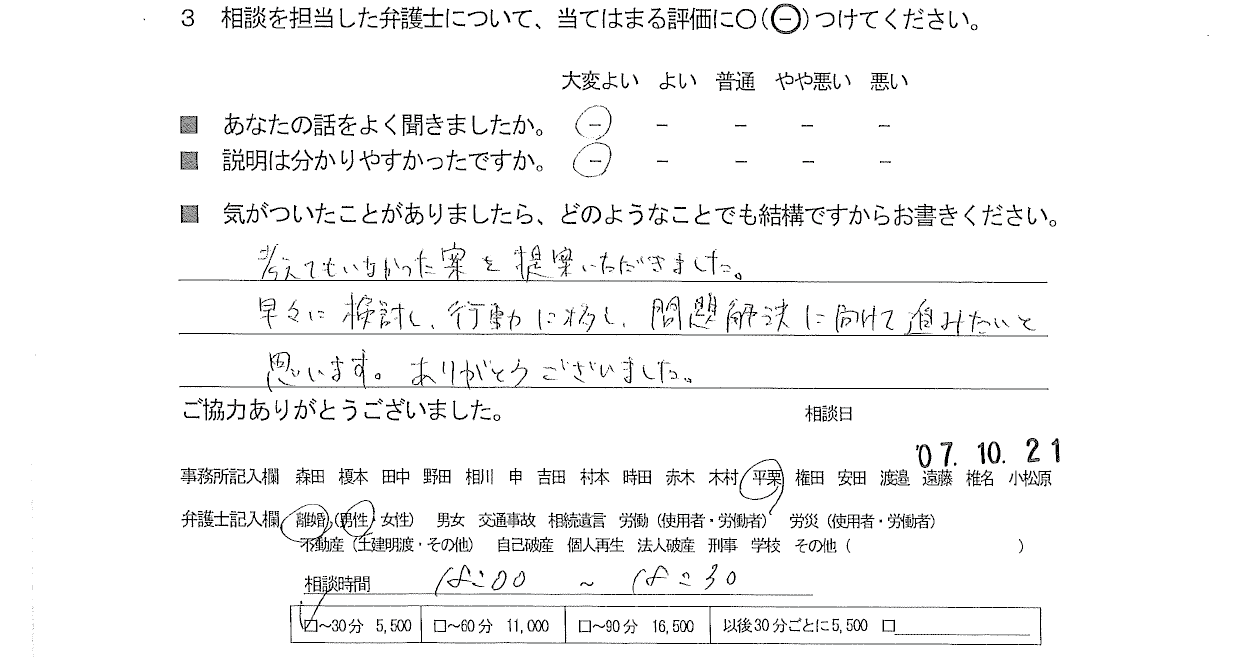 3 相談を担当した弁護士について、当てはまる評価に○(⊖)つけてください。
大変よい よい 普通 やや悪い 悪い
■ あなたの話をよく聞きましたか。 － － － － －
■ 説明は分かりやすかったですか。 － － － － －
■ 気がついたことがありましたら、どのようなことでも結構ですからお書きください。
考えてもいなかった案を提案いただきました。
早々に検討し、行動に移し、問題解決に向けて進みたいと
思います。ありがとうございました。
ご協力ありがとうございました。 相談日
'07.10.21
事務所記入欄 森田 榎本 田中 野田 相川 申 吉田 村本 時田 赤木 木村 平栗 権田 安田 渡邉 遠藤 椎名 小松原
弁護士記入欄 離婚 (男性・女性) 男女 交通事故 相続遺言 労働 (使用者・労働者) 労災 (使用者・労働者)
不動産 (土建明渡・その他) 自己破産 個人再生 法人破産 刑事 学校 その他 ( )
相談時間 18:00 ~ 18:30
□~30分 5,500 □~60分 11,000 □~90分 16,500 以後30分ごとに5,500 □